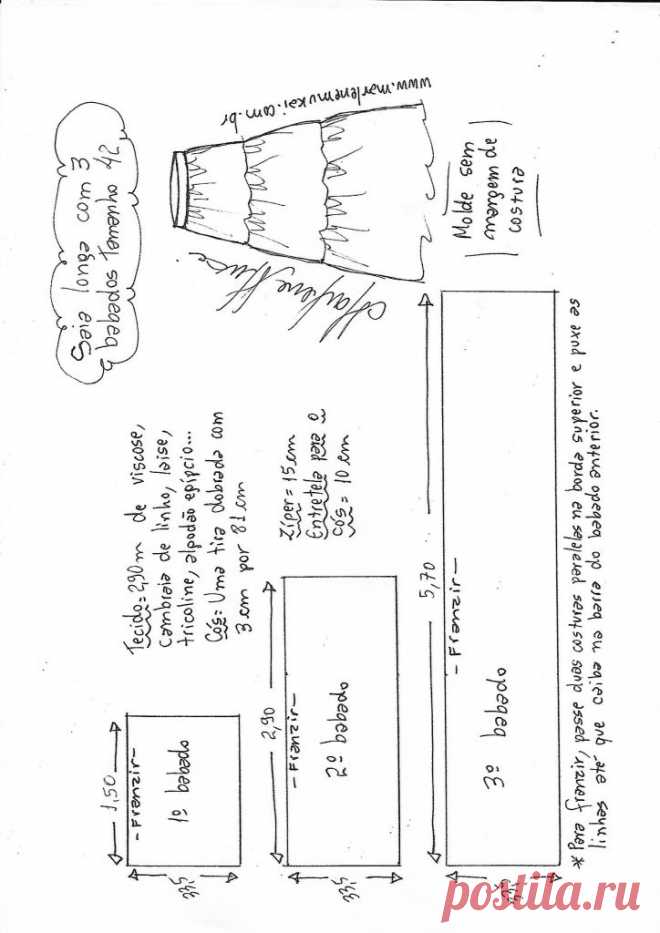 Saia longa com 3
babados tamanho 42
www.marlenemukai.com.br
Marlene Mukai
Molde sem
margem de
costura
Tecido= 2,90 m de viscose,
cambraia de linho, laise,
tricoline, algodão egípcio...
Cós= Uma tira dobrada com
3 cm por 81 cm
Zíper = 15 cm
Entretela para o
cós = 10 cm
1,50
-Franzir-
1º babado
33,5
2,90
-Franzir-
2º babado
33,5
5,70
-Franzir-
3º babado
33,5
* Para franzir, passe duas costuras paralelas na borda superior e puxe as
linhas até que caiba na barra do babado anterior.
postila.ru